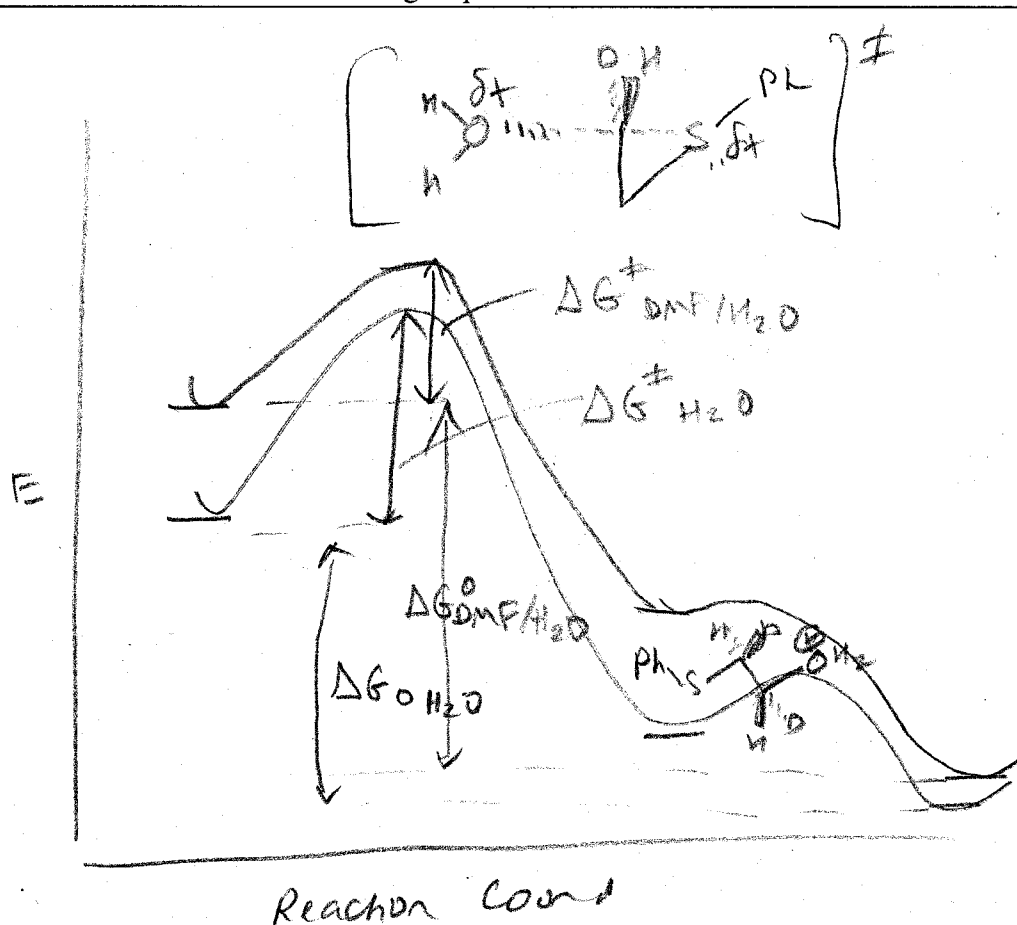 D H
H δ+ Ph ‡
O S
H δ+
ΔG‡ DMF/H2O
ΔG‡ H2O
E
ΔG° DMF/H2O
ΔG° H2O
Ph S
⊕
O H2
H D
Reaction Coord